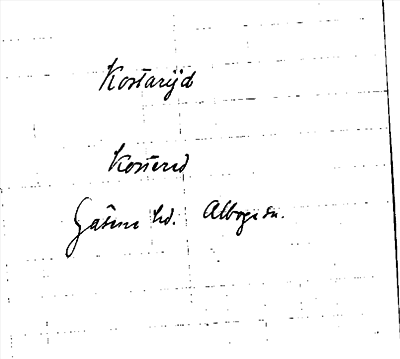 Kostarijd
Kosterud
Gåsene hd. Albogesn.